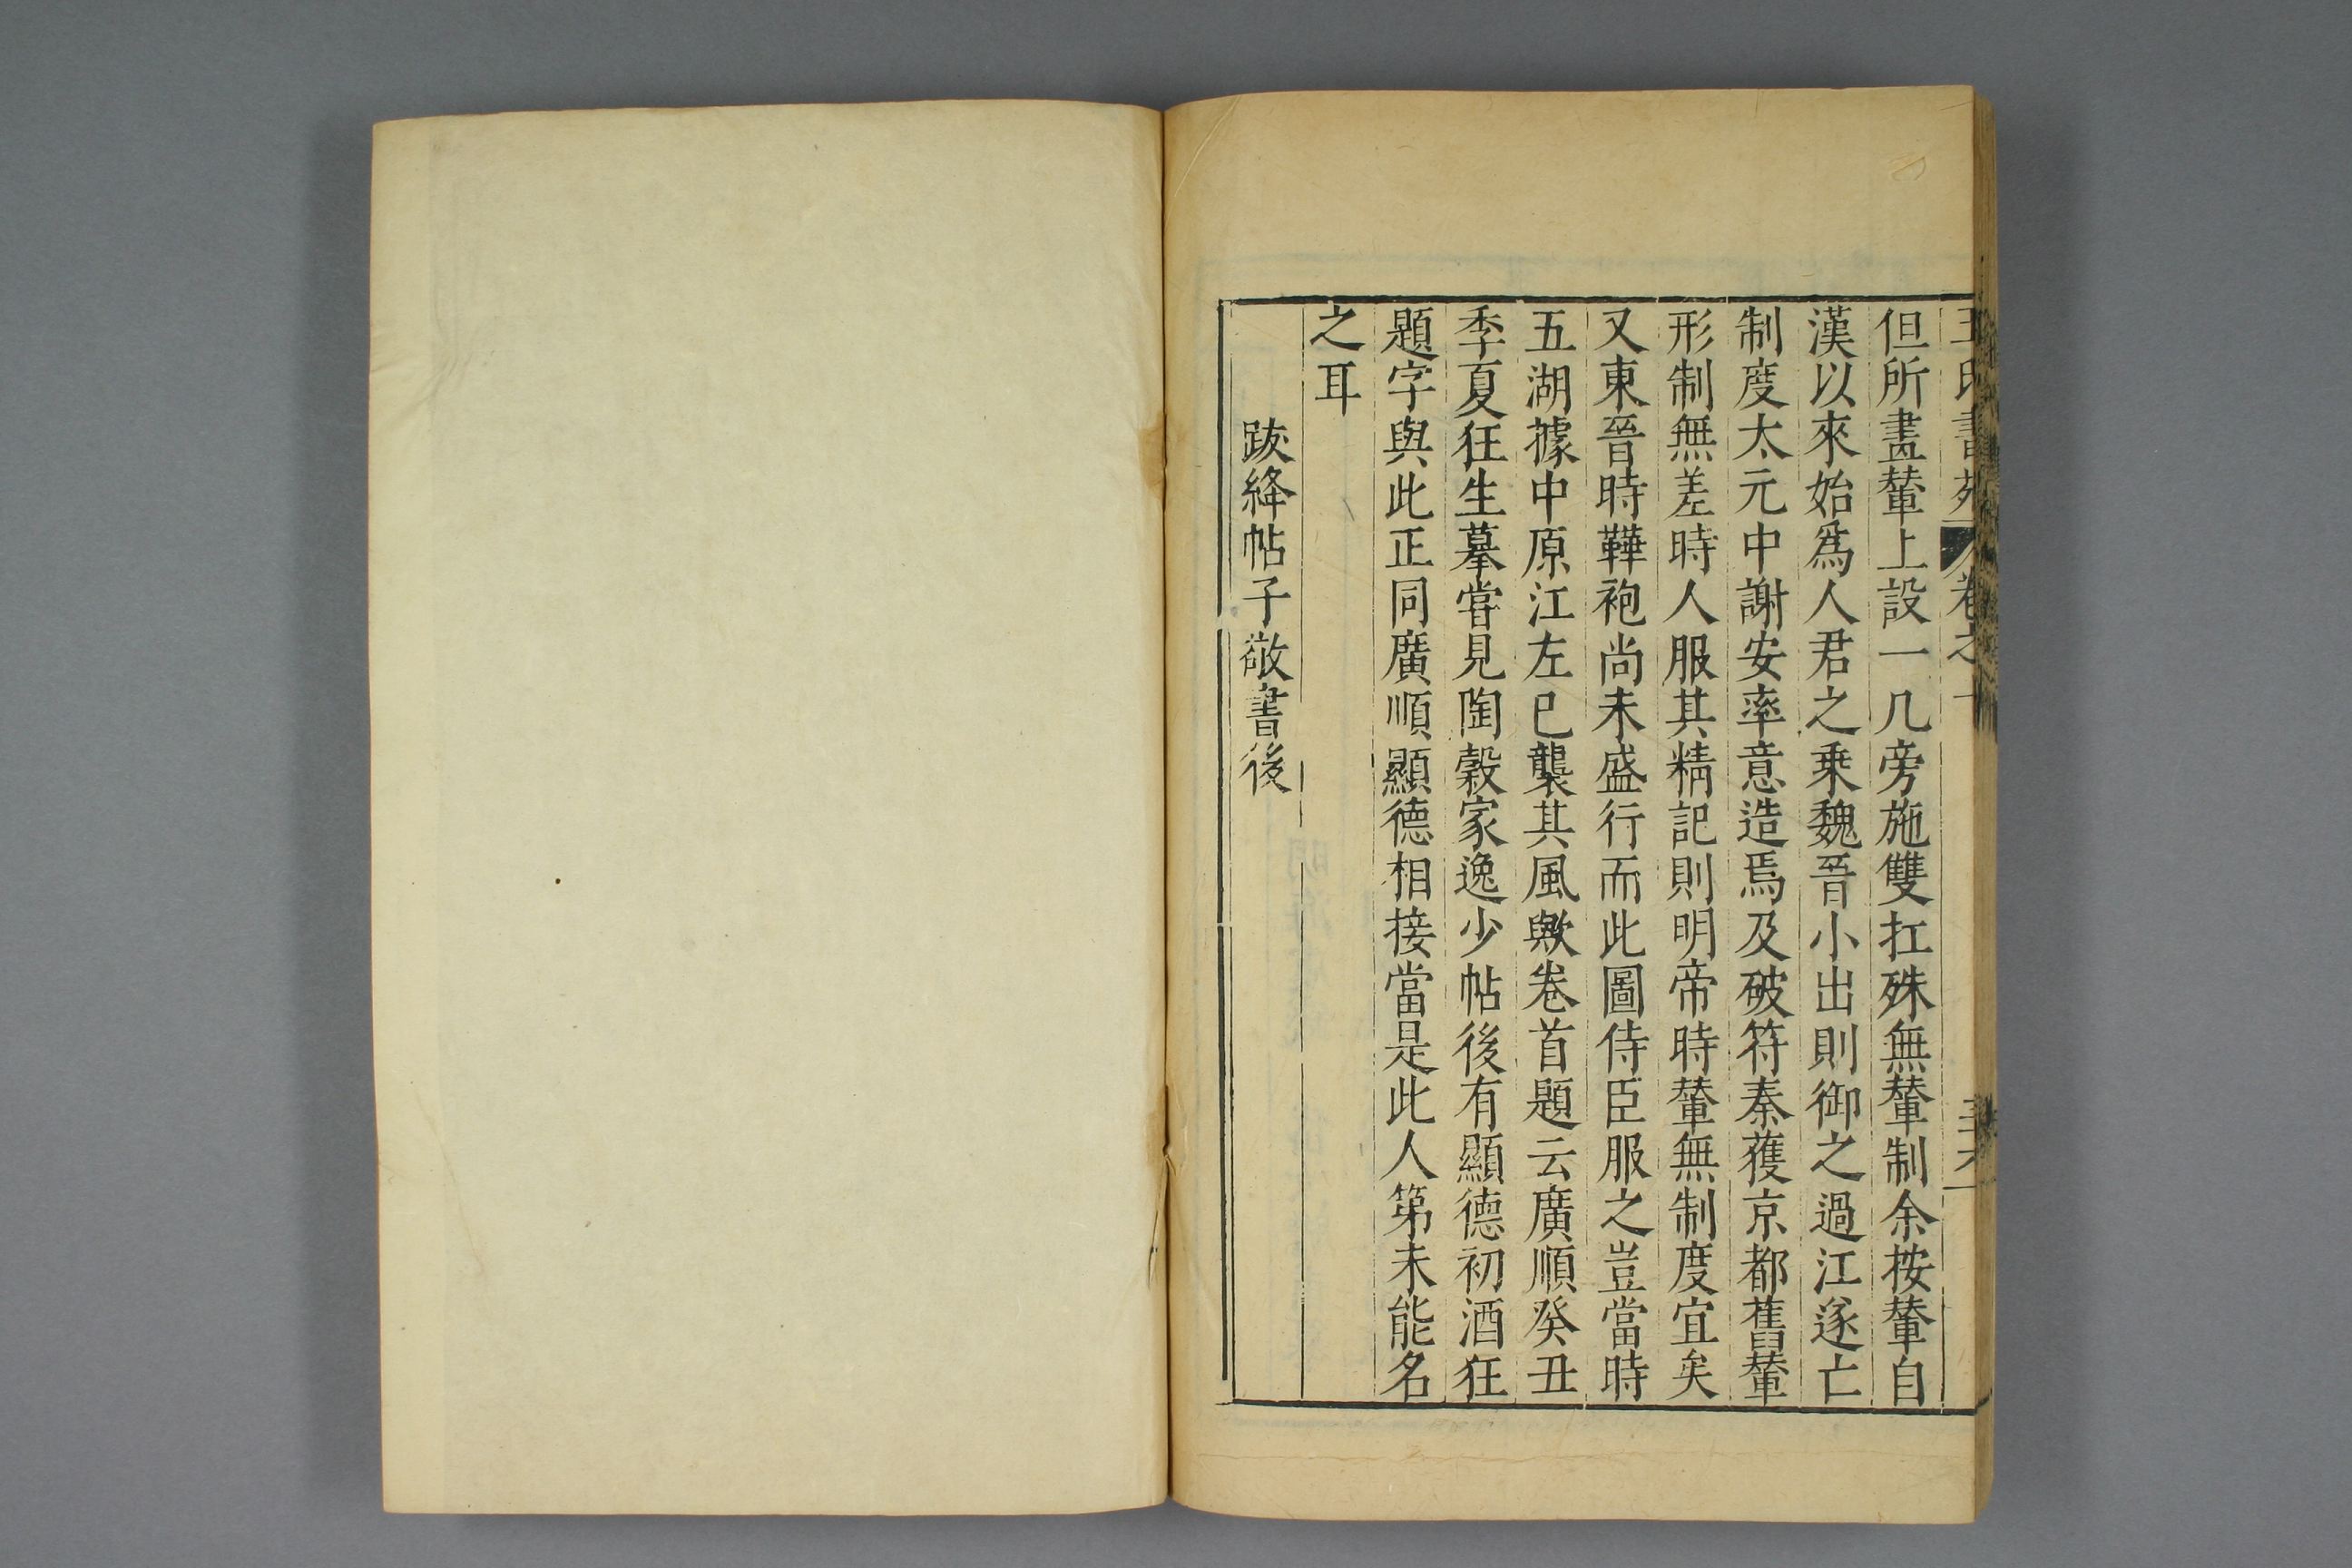 王氏書苑 卷之
但所畫輦上設一几旁施雙扛殊無輦制余按輦自
漢以來始爲人君之乗魏晉小出則御之過江遂亡
制度太元中謝安率意造焉及破符秦獲京都舊輦
形制無差時人服其精記則明帝時輦無制度宜矣
又東晉時鞾袍尚未盛行而此圖侍臣服之豈當時
五湖據中原江左已襲其風歟卷首題云廣順癸丑
季夏狂生摹嘗見陶穀家逸少帖後有顯德初酒狂
題字與此正同廣順顯德相接當是此人第未能名
之耳
跋絳帖子敬書後